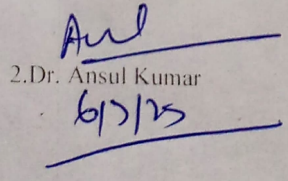 2.Dr. Ansul Kumar
6/7/25